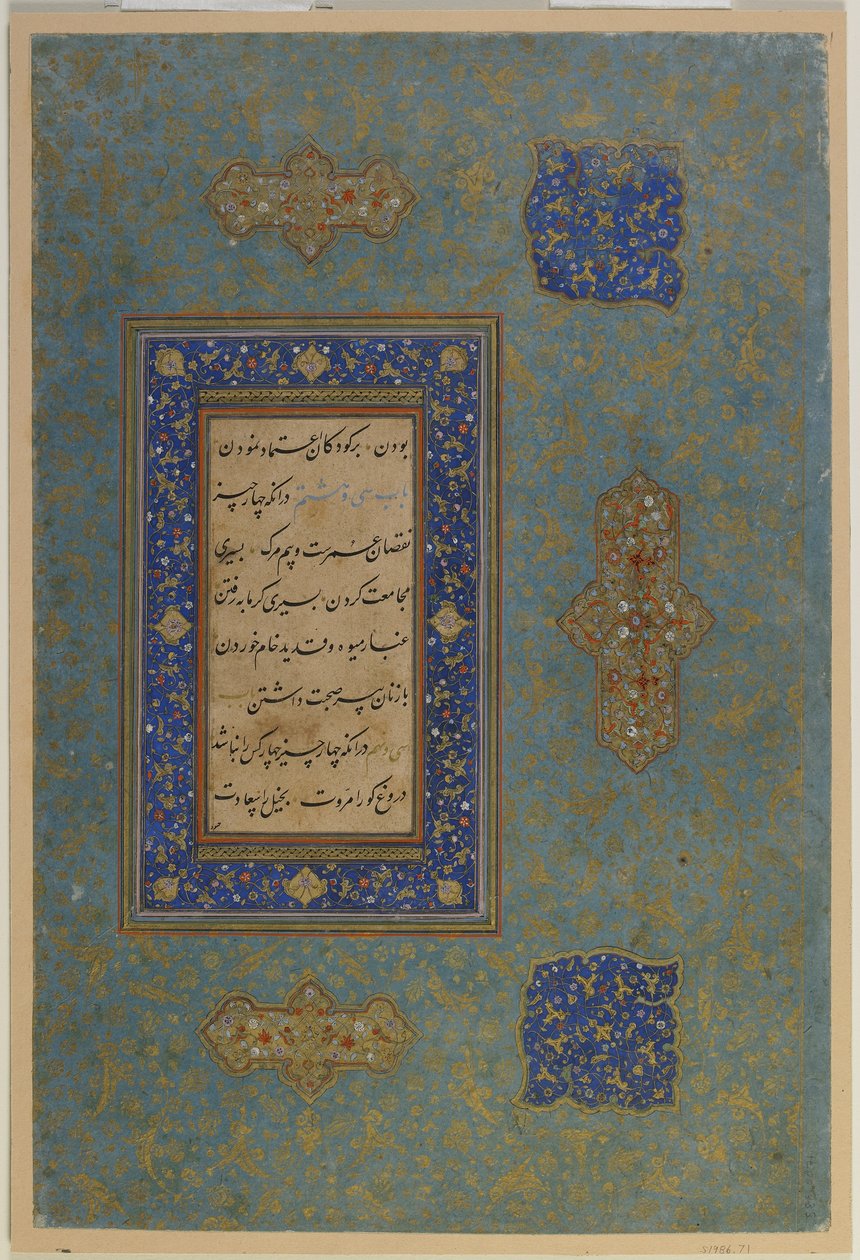 بودن برکودکان اعتماد نمودن
باب سی و هشتم درانکه چهار چیز
نقصان عمرست و بیم مرک بسیری
مجامعت کردن بسیری کرمابه رفتن
میوه و قدید خام خوردن
بازنان پیر صحبت داشتن باب
سی و نهم درانکه چهار چیز چهار کس را نباشد
دروغ کو را مروت بخیل را سعادت
S1986.71